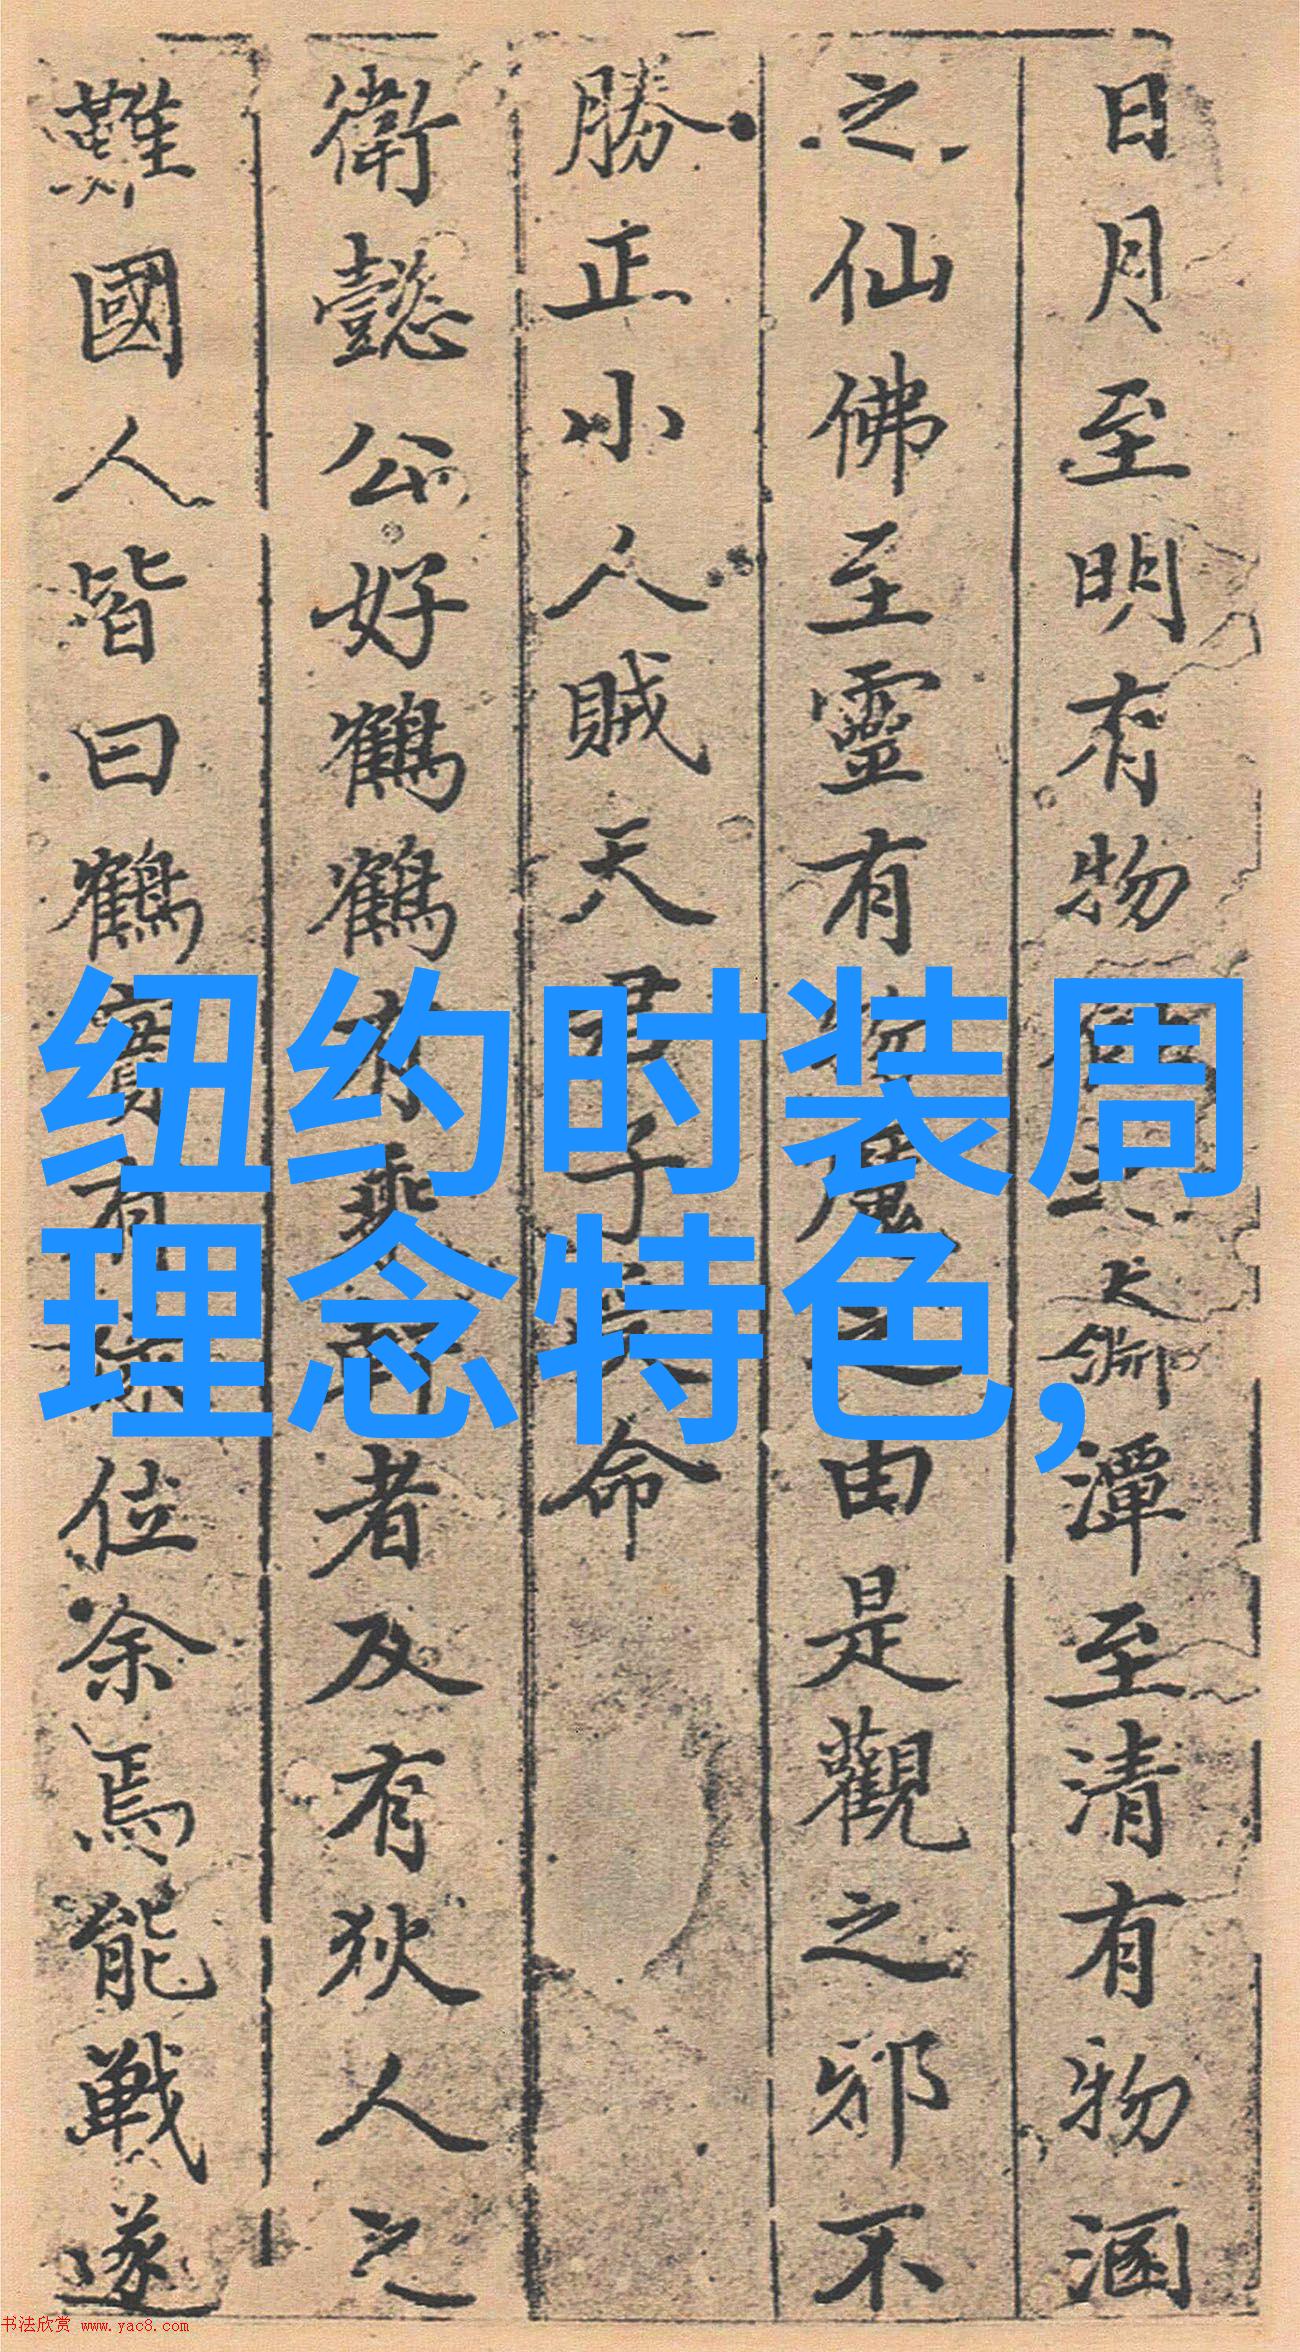 日月至明有物
潭至清有物涵
之仙佛至靈有
由是觀之邪不
勝正小人賊天君子
命
衛懿公好鶴鶴有乘軒者及有狄人之
難國人皆曰鶴實有祿位余焉能戰遂
纽约时装周
理念特色,
书法欣赏 www.yac8.com